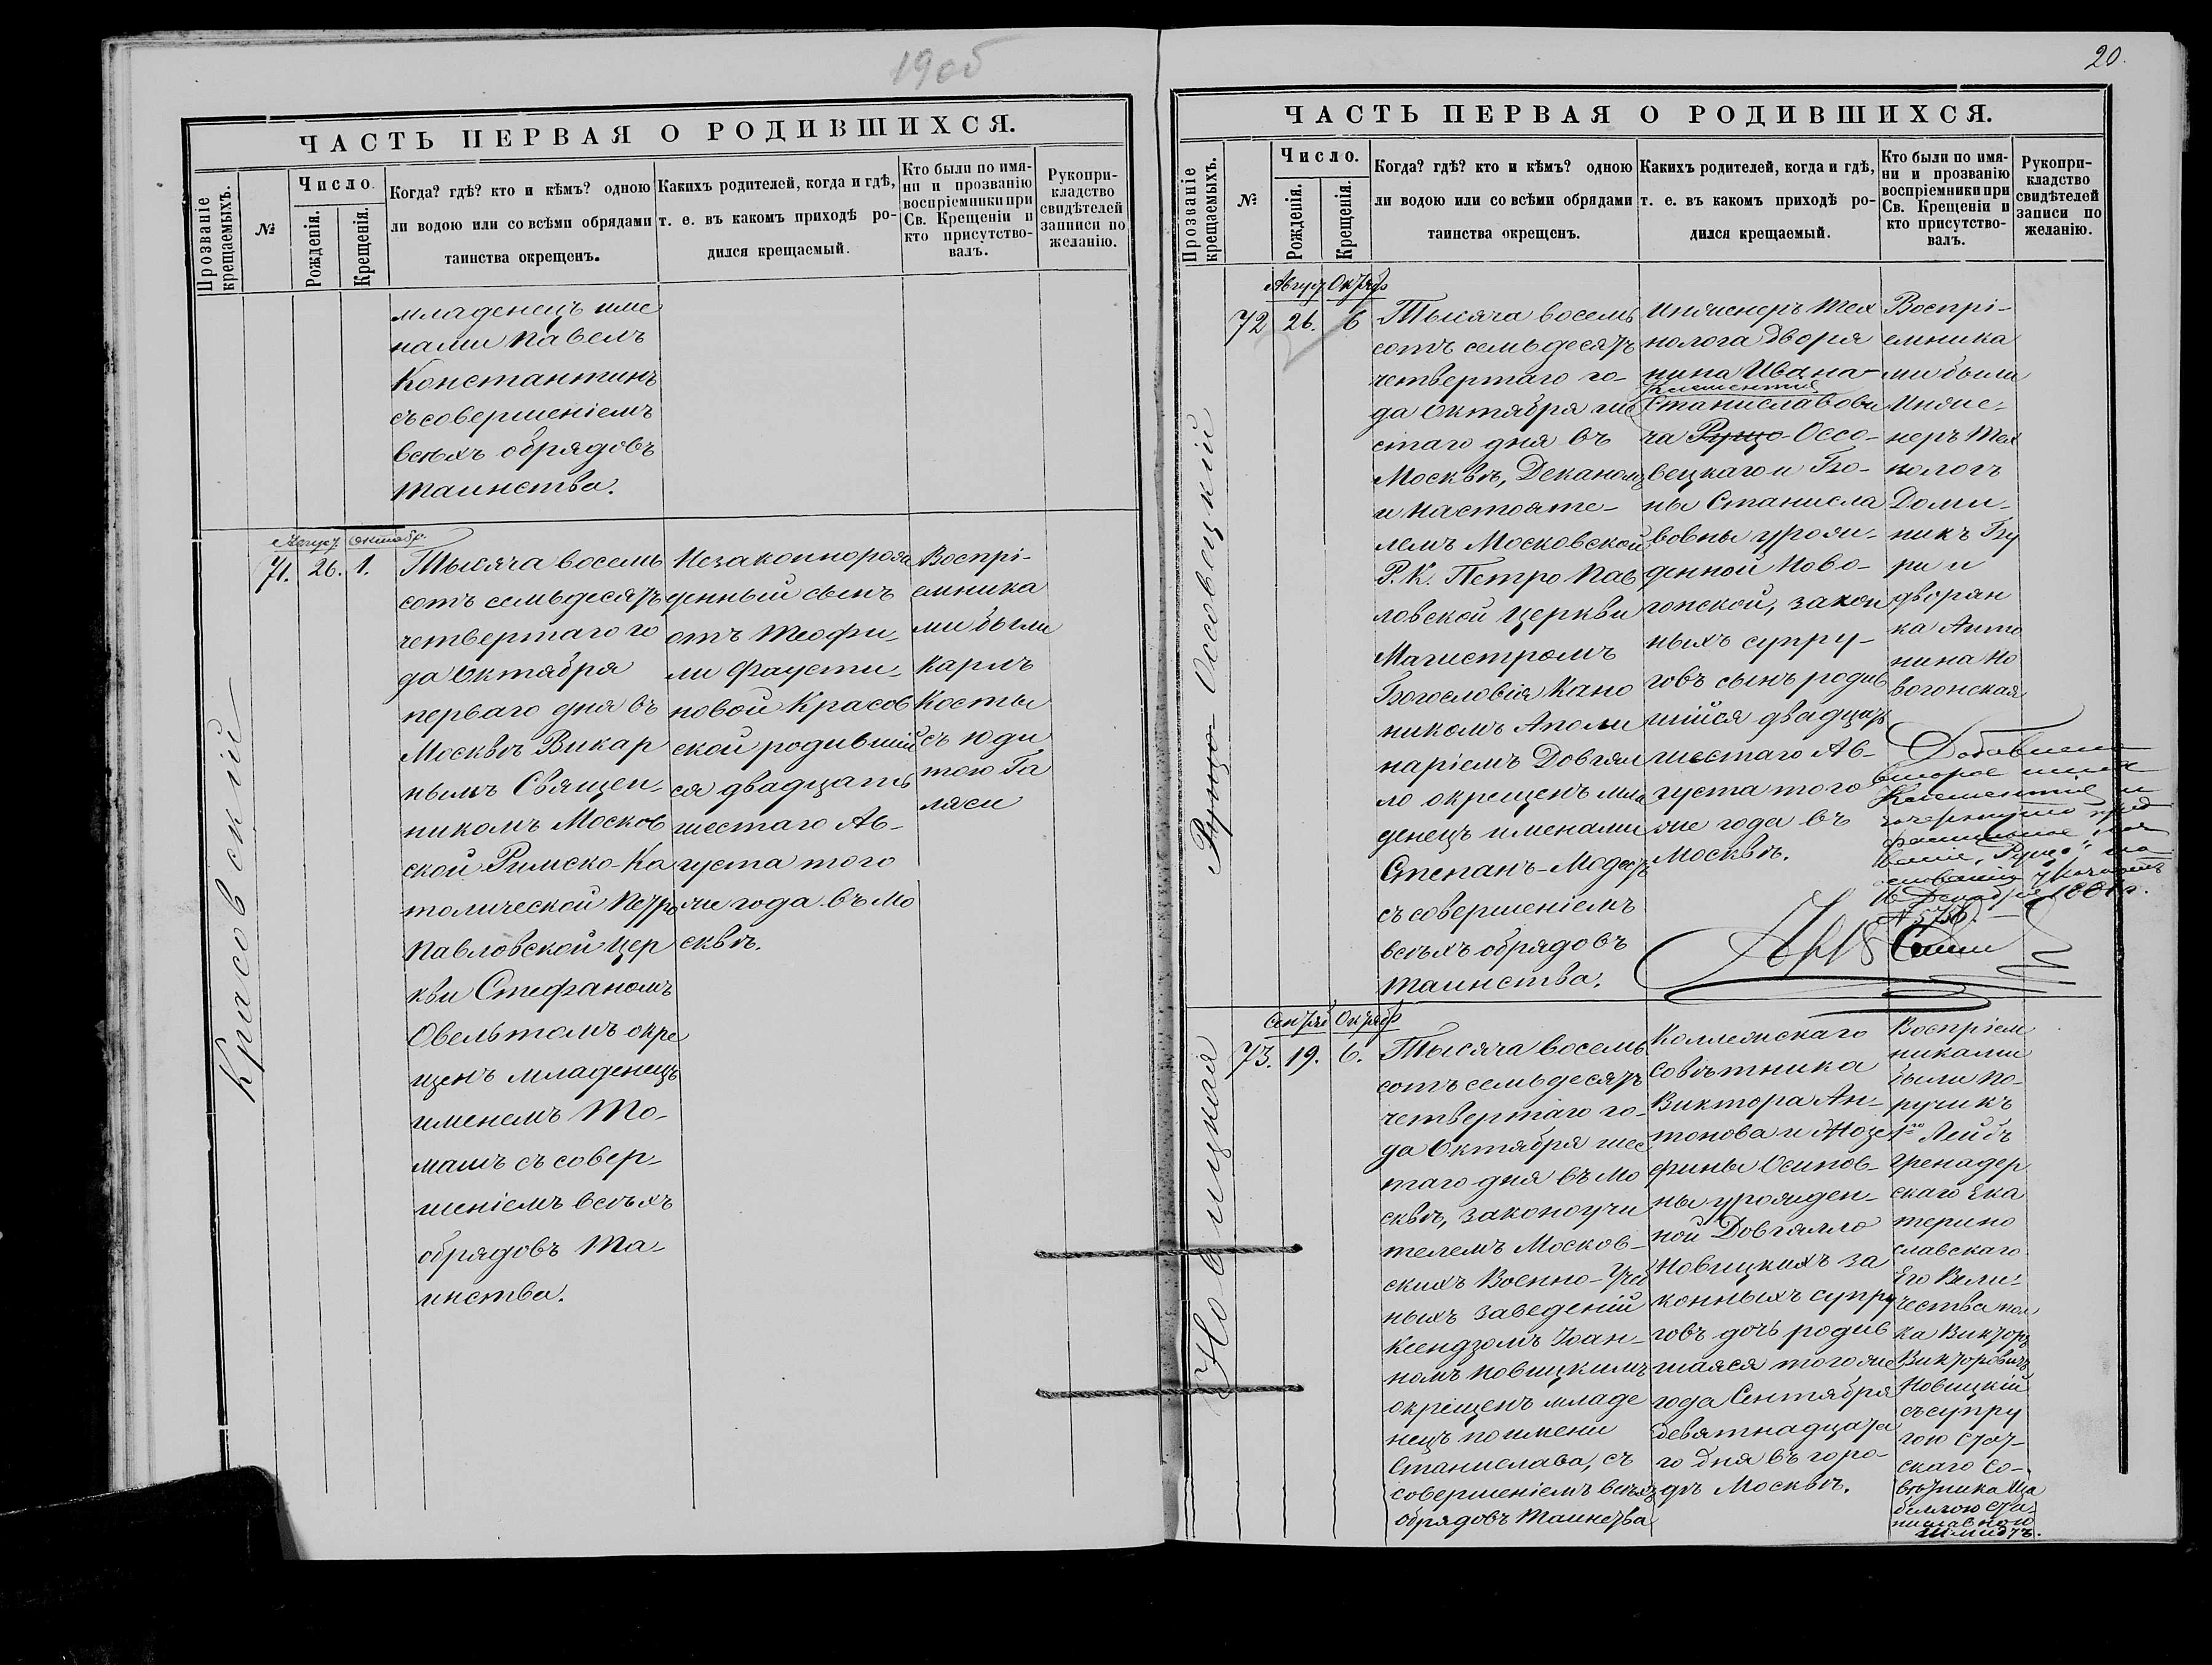 19об
ЧАСТЬ ПЕРВАЯ О РОДИВШИХСЯ.
Прозваніе крещаемыхъ.
№
Число.
Рожденія.
Крещенія.
Когда? гдѣ? кто и кѣмъ? одною
ли водою или со всѣми обрядами
таинства окрещенъ.
Какихъ родителей, когда и гдѣ,
т. е. въ какомъ приходѣ ро-
дился крещаемый.
Кто были по имя-
ни и прозванію
воспріемники при
Св. Крещеніи и
кто присутство-
валъ.
Рукопри-
кладство
свидѣтелей
записи по
желанію.
младенецъ име
нами Павелъ
Константинъ
съ совершеніемъ
всѣхъ обрядовъ
таинства.
Красовскій
Август Октябр.
71. 26. 1.
Тысяча восемь
сотъ семьдесятъ
четвертаго го
да Октября
перваго дня въ
Москвѣ Викар
нымъ Священ-
никомъ Москов
ской Римско-Ка
толической Петро
Павловской цер
кви Стефаномъ
Овельтомъ окре
щенъ младенецъ
именемъ То-
машъ съ совер-
шеніемъ всѣхъ
обрядовъ та-
инства.
Незаконнорож
денный сынъ
отъ Теофи-
ли Фаусти-
новой Красов
ской родившій
ся двадцать
шестаго Ав-
густа того
же года въ Мо
сквѣ.
Воспрі-
емника
ми были
Карлъ
Косты
съ Юди
тою Га
ляси
20.
ЧАСТЬ ПЕРВАЯ О РОДИВШИХСЯ.
Прозваніе крещаемыхъ.
№
Число.
Рожденія.
Крещенія.
Когда? гдѣ? кто и кѣмъ? одною
ли водою или со всѣми обрядами
таинства окрещенъ.
Какихъ родителей, когда и гдѣ,
т. е. въ какомъ приходѣ ро-
дился крещаемый.
Кто были по имя-
ни и прозванію
воспріемники при
Св. Крещеніи и
кто присутство-
валъ.
Рукопри-
кладство
свидѣтелей
записи по
желанію.
Рущо-Оссовецкій
Август Октябр
72 26. 6
Тысяча восемь
сотъ семьдесятъ
четвертаго го-
да Октября ше
стаго дня въ
Москвѣ, Деканомъ
и Настояте-
лемъ Московской
Р. К. Петро Пав
ловской церкви
Магистромъ
Богословія Кано
никомъ Аполи
наріемъ Довгял
ло окрещенъ мла
денецъ именами
Степанъ-Модестъ
съ совершеніемъ
всѣхъ обрядовъ
таинства.
Инженеръ Тех
нолога Дворя
нина Ивана-
Клементія
Станиславови
ча Рущо-Оссо-
вецкаго и Бро-
ны Станисла
вовны урож-
денной Ново-
гонской, закон
ныхъ супру-
говъ сынъ родив
шійся двадцать
шестаго Ав-
густа того
же года въ
Москвѣ.
Воспрі-
емника
ми были
Инже-
неръ Тех
нологъ
Доми-
никъ Гзу
ри и
дворян
ка Анто
нина Но
вогонская
Добавлено
второе имя
Клементій и
зачеркнуто пред
фамильное наз
ваніе "Рущо" на
основаніи
16 Декабря
Новицкая
Сентяб Октябр
73. 19. 6.
Тысяча восемь
сотъ семьдесятъ
четвертаго го-
да Октября шес
таго дня въ Мо
сквѣ, законоучи
телемъ Москов-
скихъ Военно-Учеб
ныхъ заведеній
Ксендзомъ Іоан-
номъ Новицкимъ
окрещенъ младе
нецъ по имени
Станислава, съ
совершеніемъ всѣхъ
обрядовъ таинства
Коллежскаго
Совѣтника
Виктора Ан-
тонова и Жозе
фины Осипов-
ны урожден-
ной Довгялло
Новицкихъ за
конныхъ супру
говъ дочь родив
шаяся того же
года Сентября
девятнадцата
го дня въ горо-
дѣ Москвѣ.
Воспріем
никами
были По-
ручикъ
1го Лейбъ
Гренадер
скаго Ека
терино
славскаго
Его Вели-
чества пол
ка Викторъ
Викторовичъ
Новицкій
съ супру
гою Стат-
скаго Со-
вѣтника Иза
беллою Ста-
ниславной
Шмидтъ.